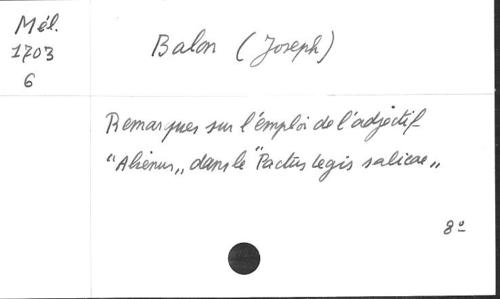 Mél.
1703
6
Balon (Joseph)
Remarques sur l'emploi de l'adjectif
"Alienus„ dans le "Pactus legis salicae„
8º